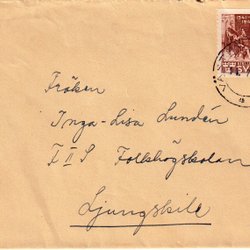 Fröken
Inga-Lisa Lundén
Folkhögskolan
Ljungskile